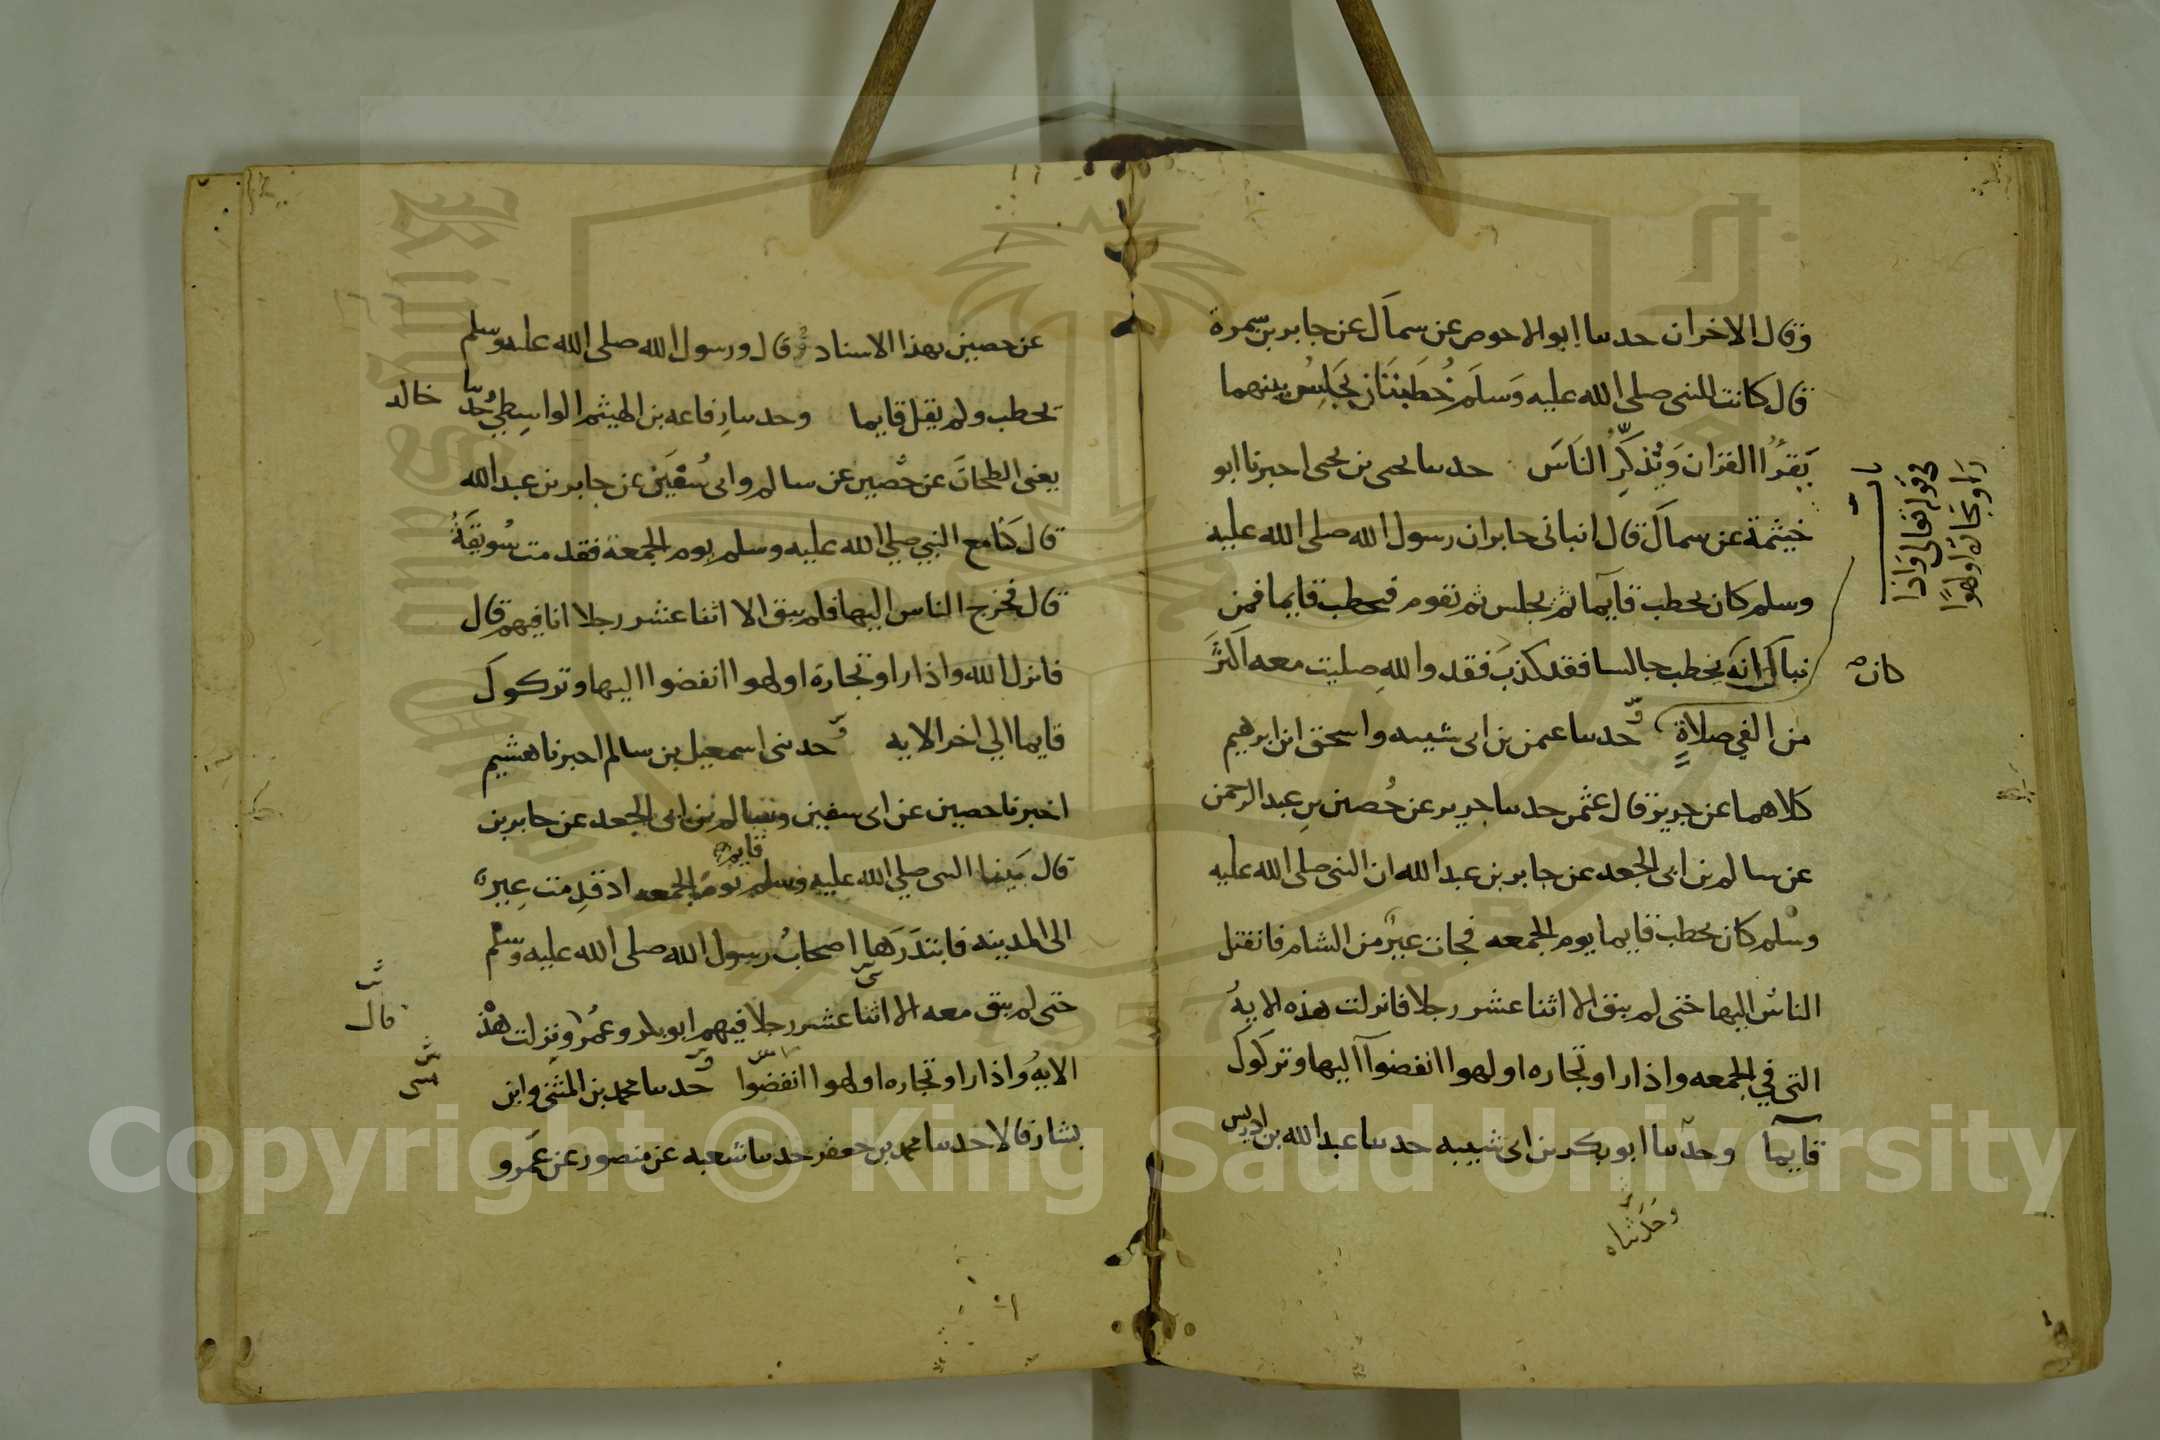 وقال الاخران حدسا ابو الاحوص عن سماك عن جابر بن سمرة
قال كانت للنبي صلى الله عليه وَسلَم خُطبَتَان يَجلِسُ بينهما
يَقرُا القران وَيُذكِّرُ الناسَ حدسا يحيى بن يحيى اخبرنا ابو
خيثمة عن سماك قال انباني جابر ان رسول الله صلى الله عليه
وسلم كان يخطب قايما ثم يجلس ثم يقوم فيخطب قايما فمن
نباك انه يخطب جالسا فقد كذبَ فقد واللهِ صليت معه اكثرَ
من الفي صلاةٍ وحدسا عثمن بن ابي شيبه واسحق ابن ابرهيم
كلاهما عن جرير قال عثمن حدسا جرير عن حُصين بنِ عبد الرحمن
عن سالم بن ابي الجعد عن جابر بن عبد الله ان النبي صلى الله عليه
وسلم كان يخطب قايما يوم الجمعه فجات عيرٌ من الشام فانفتل
الناسُ اليها حتى لم يبق الا اثنا عشر رجلا فانزلت هذه الايهُ
التي في الجمعه واذا راو تجاره او لهوا انفضوآ اليها وتركوك
قايمآ وحدسا ابو بكر بن ابي شيبه حدسا عبد الله بن ادريس
باب
في قوله تعالى واذا
راو تجارة او لهوًا
كان
وحَدثناه
عن حصين بهذا الاسناد وقال ورسول الله صلى الله عليه وسلم
يخطب ولم يقل قايما وحدسا رفاعه بن الهيثم الواسِطيُ حدسا خالد
يعني الطحانَ عن حُصين عن سالم وابي سُفين عن جابر بن عبد الله
قال كَنا مع النبي صلي الله عليه وسلم يوم الجمعة فقدمت سُويقَةُ
قال فخرج الناس اليها فلم يبق الا اثنا عشر رجلا انا فيهم قال
فانزل الله واذا راو تجارة او لهوا انفضوا اليها وتركوك
قايما الي اخر الايه وحدثني اسمعيل بن سالم اخبرنا هشيم
اخبرنا حصين عن ابي سفين وسالم بن ابي الجعد عن جابر بن
قال بَينا النبي صلي الله عليه وسلم قايم يوم الجمعه اذ قدِمت عِيرٌ
الى المدينه فابتدَرَها اصحابُ رسول الله صلى الله عليه وسلم
حتى لم يبق معه الا اثنا عشر رجلا فيهم ابو بكر وعُمرُ ونزلت هذ
الايهُ واذا راو تجاره او لهوا انفضّوا وحدسا محمد بن المثنى وابن
بشار قالا حدسا محمد بن جعفر حدسا شعبه عن منصور عن عَمرو
قال
Copyright © King Saud University
King Saud University
1957